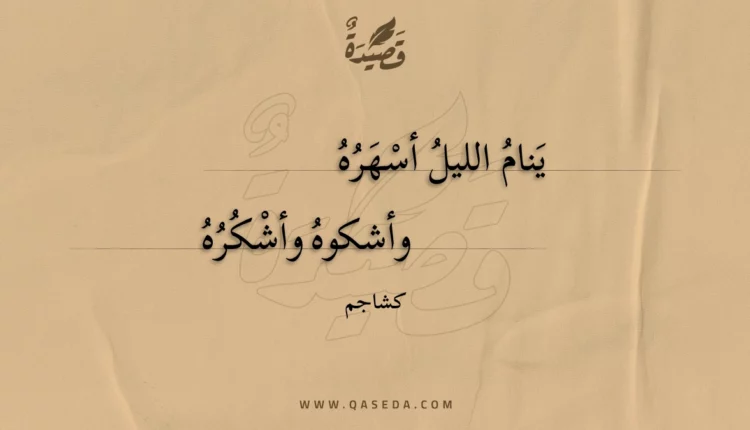 قَصِيْدَةٌ
يَنامُ الليلُ أسْهَرُهُ
وأشكوهُ وأشْكُرُهُ
كشاجم
WWW.QASEDA.COM